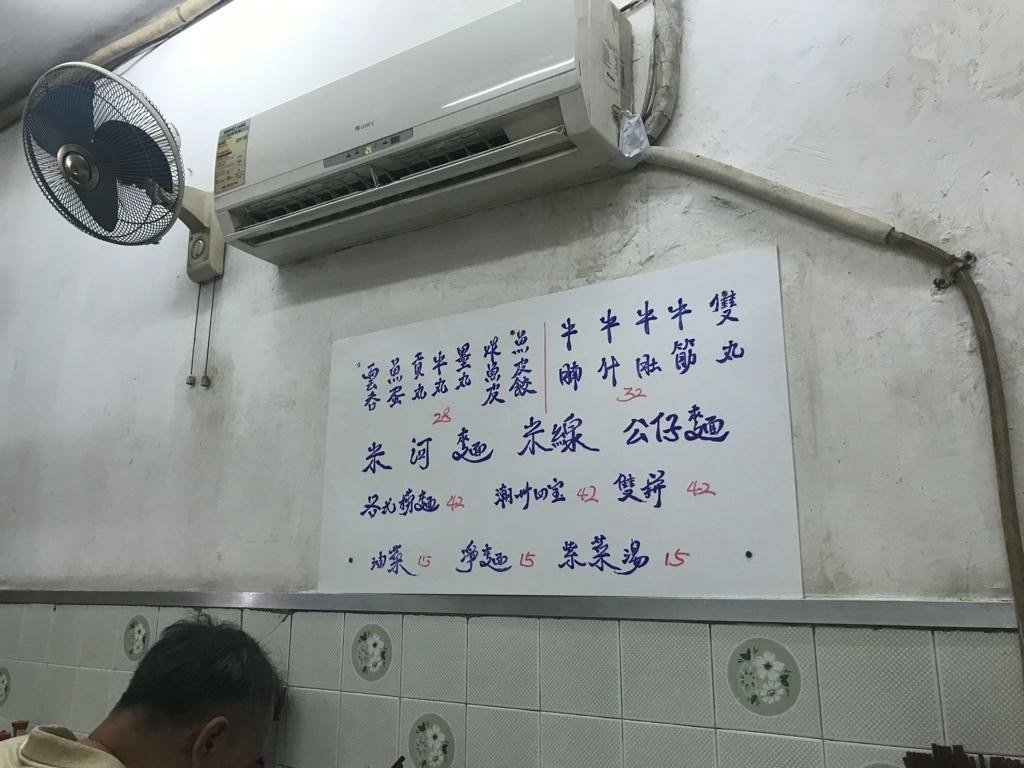 GREE
雲吞 魚蛋 貢丸 牛丸 墨丸 炸魚皮 魚皮餃 28
牛肺 牛什 牛肚 牛筋 雙丸 32
米 河 麵 米線 公仔麵
各式撈麵 42 潮州四宝 42 雙拼 42
油菜 15 净麵 15 紫菜湯 15